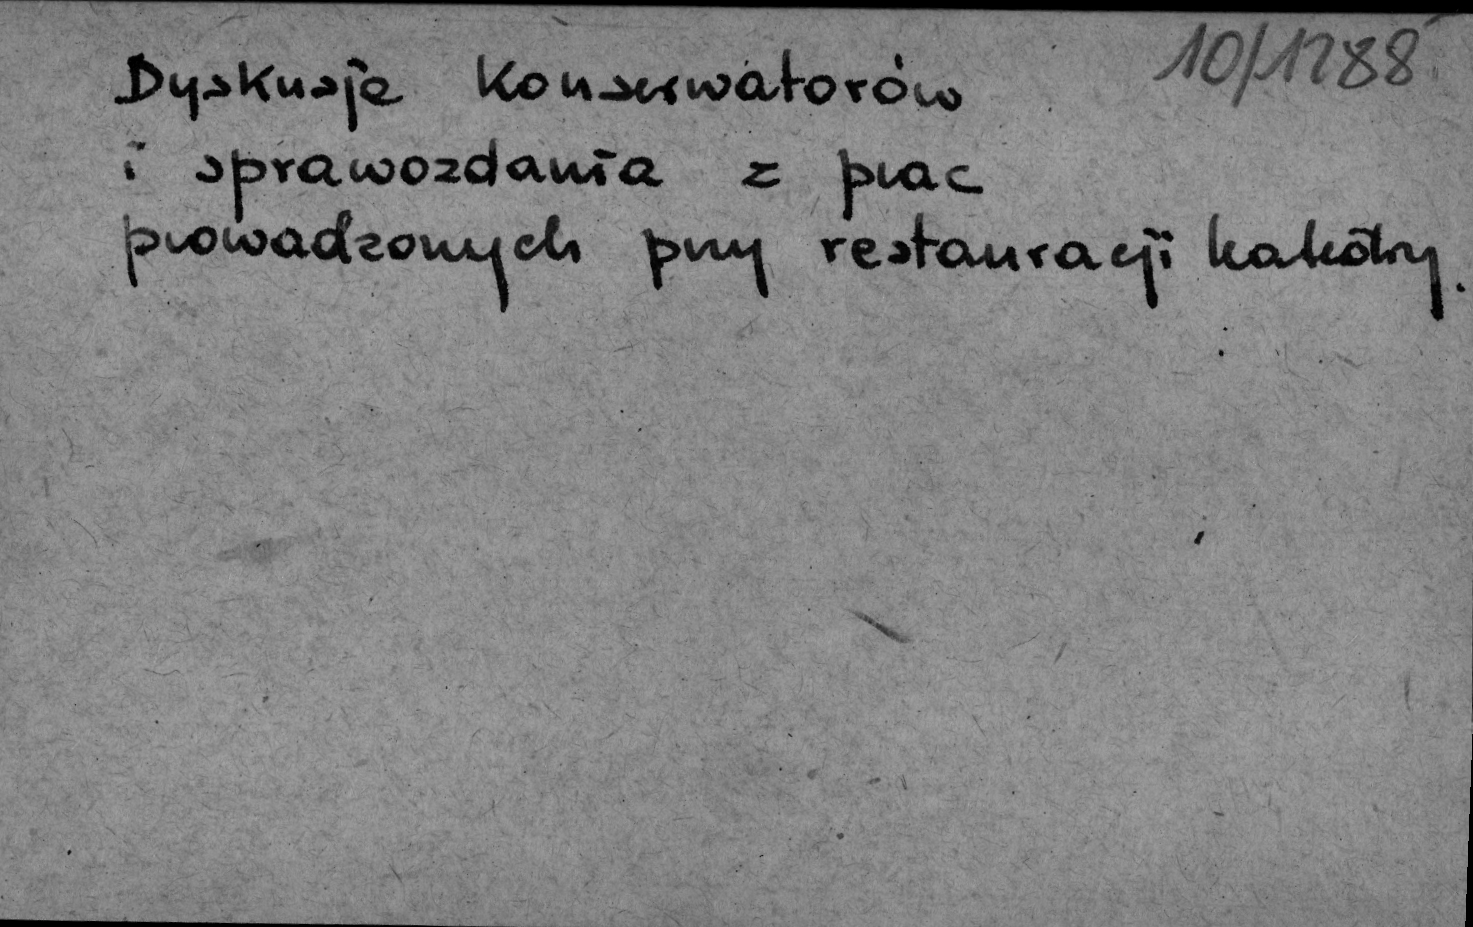 10/1288
Dyskusje konserwatorów
i sprawozdania z prac
prowadzonych przy restauracji katedry.